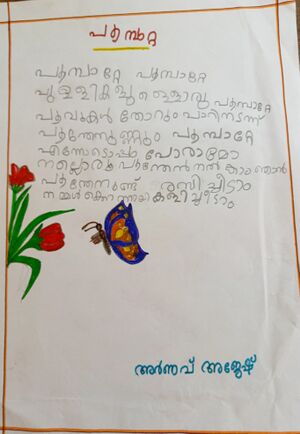 പൂമ്പാറ്റ
പൂമ്പാറ്റേ പൂമ്പാറ്റേ
പുള്ളികുപ്പായ പൂമ്പാറ്റേ
പൂവുകൾ തോറും പാറിനടന്ന്
പൂന്തേനുണ്ണും പൂമ്പാറ്റേ
എന്നോടൊപ്പം പോരാമോ
നല്ലൊരു പൂന്തേൻ നൽകാം ഞാൻ
പൂന്തേനുണ്ട് രസിച്ചീടാം
നമ്മൾക്കൊന്നായ് കളിച്ചീടാം
അർണവ് അജേഷ്